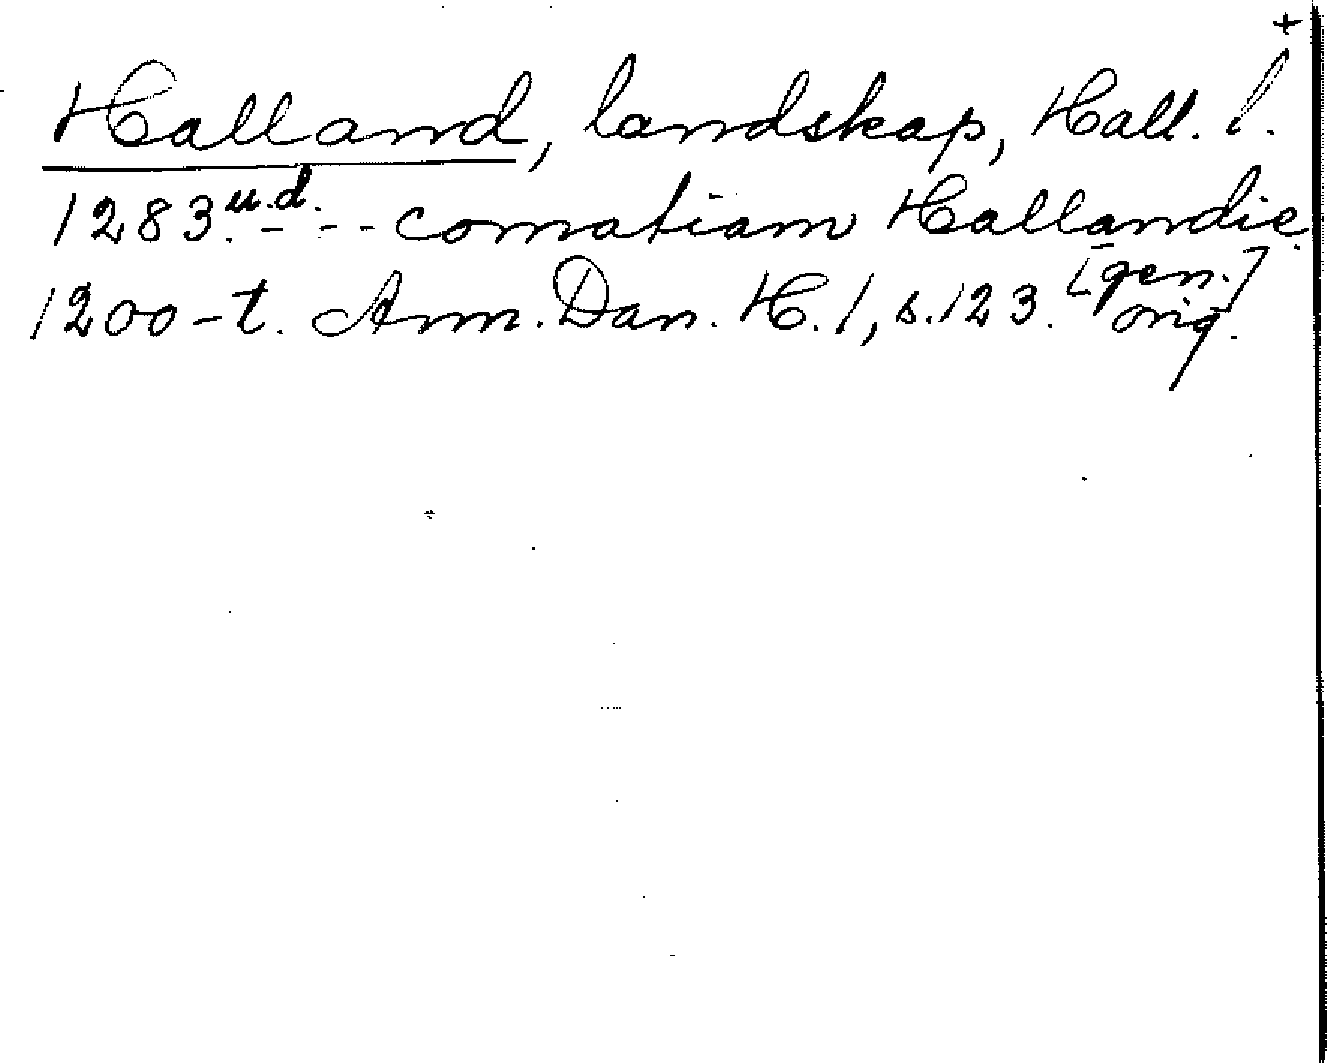 +
Halland, landskap, Hall. l.
1283 u.d. - - - comatiam Hallandie
[gen.]
1200-t. Ann. Dan. H. 1, s. 123. orig.